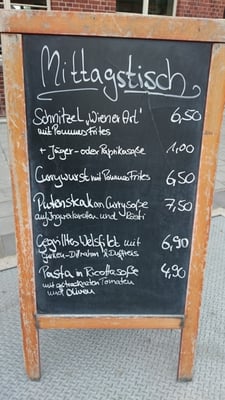 Mittagstisch
Schnitzel „Wiener Art" 6,50
mit Pommes Frites
+ Jäger- oder Paprikasoße 1,00
Currywurst mit Pommes Frites 6,50
Putensteak an Currysoße 7,50
auf Ingwerkarotten und Rösti
Gegrilltes Welsfilet mit 6,90
Gurken- & Duftreis
Pasta in Ricottasoße 4,90
mit getrockneten Tomaten
und Oliven